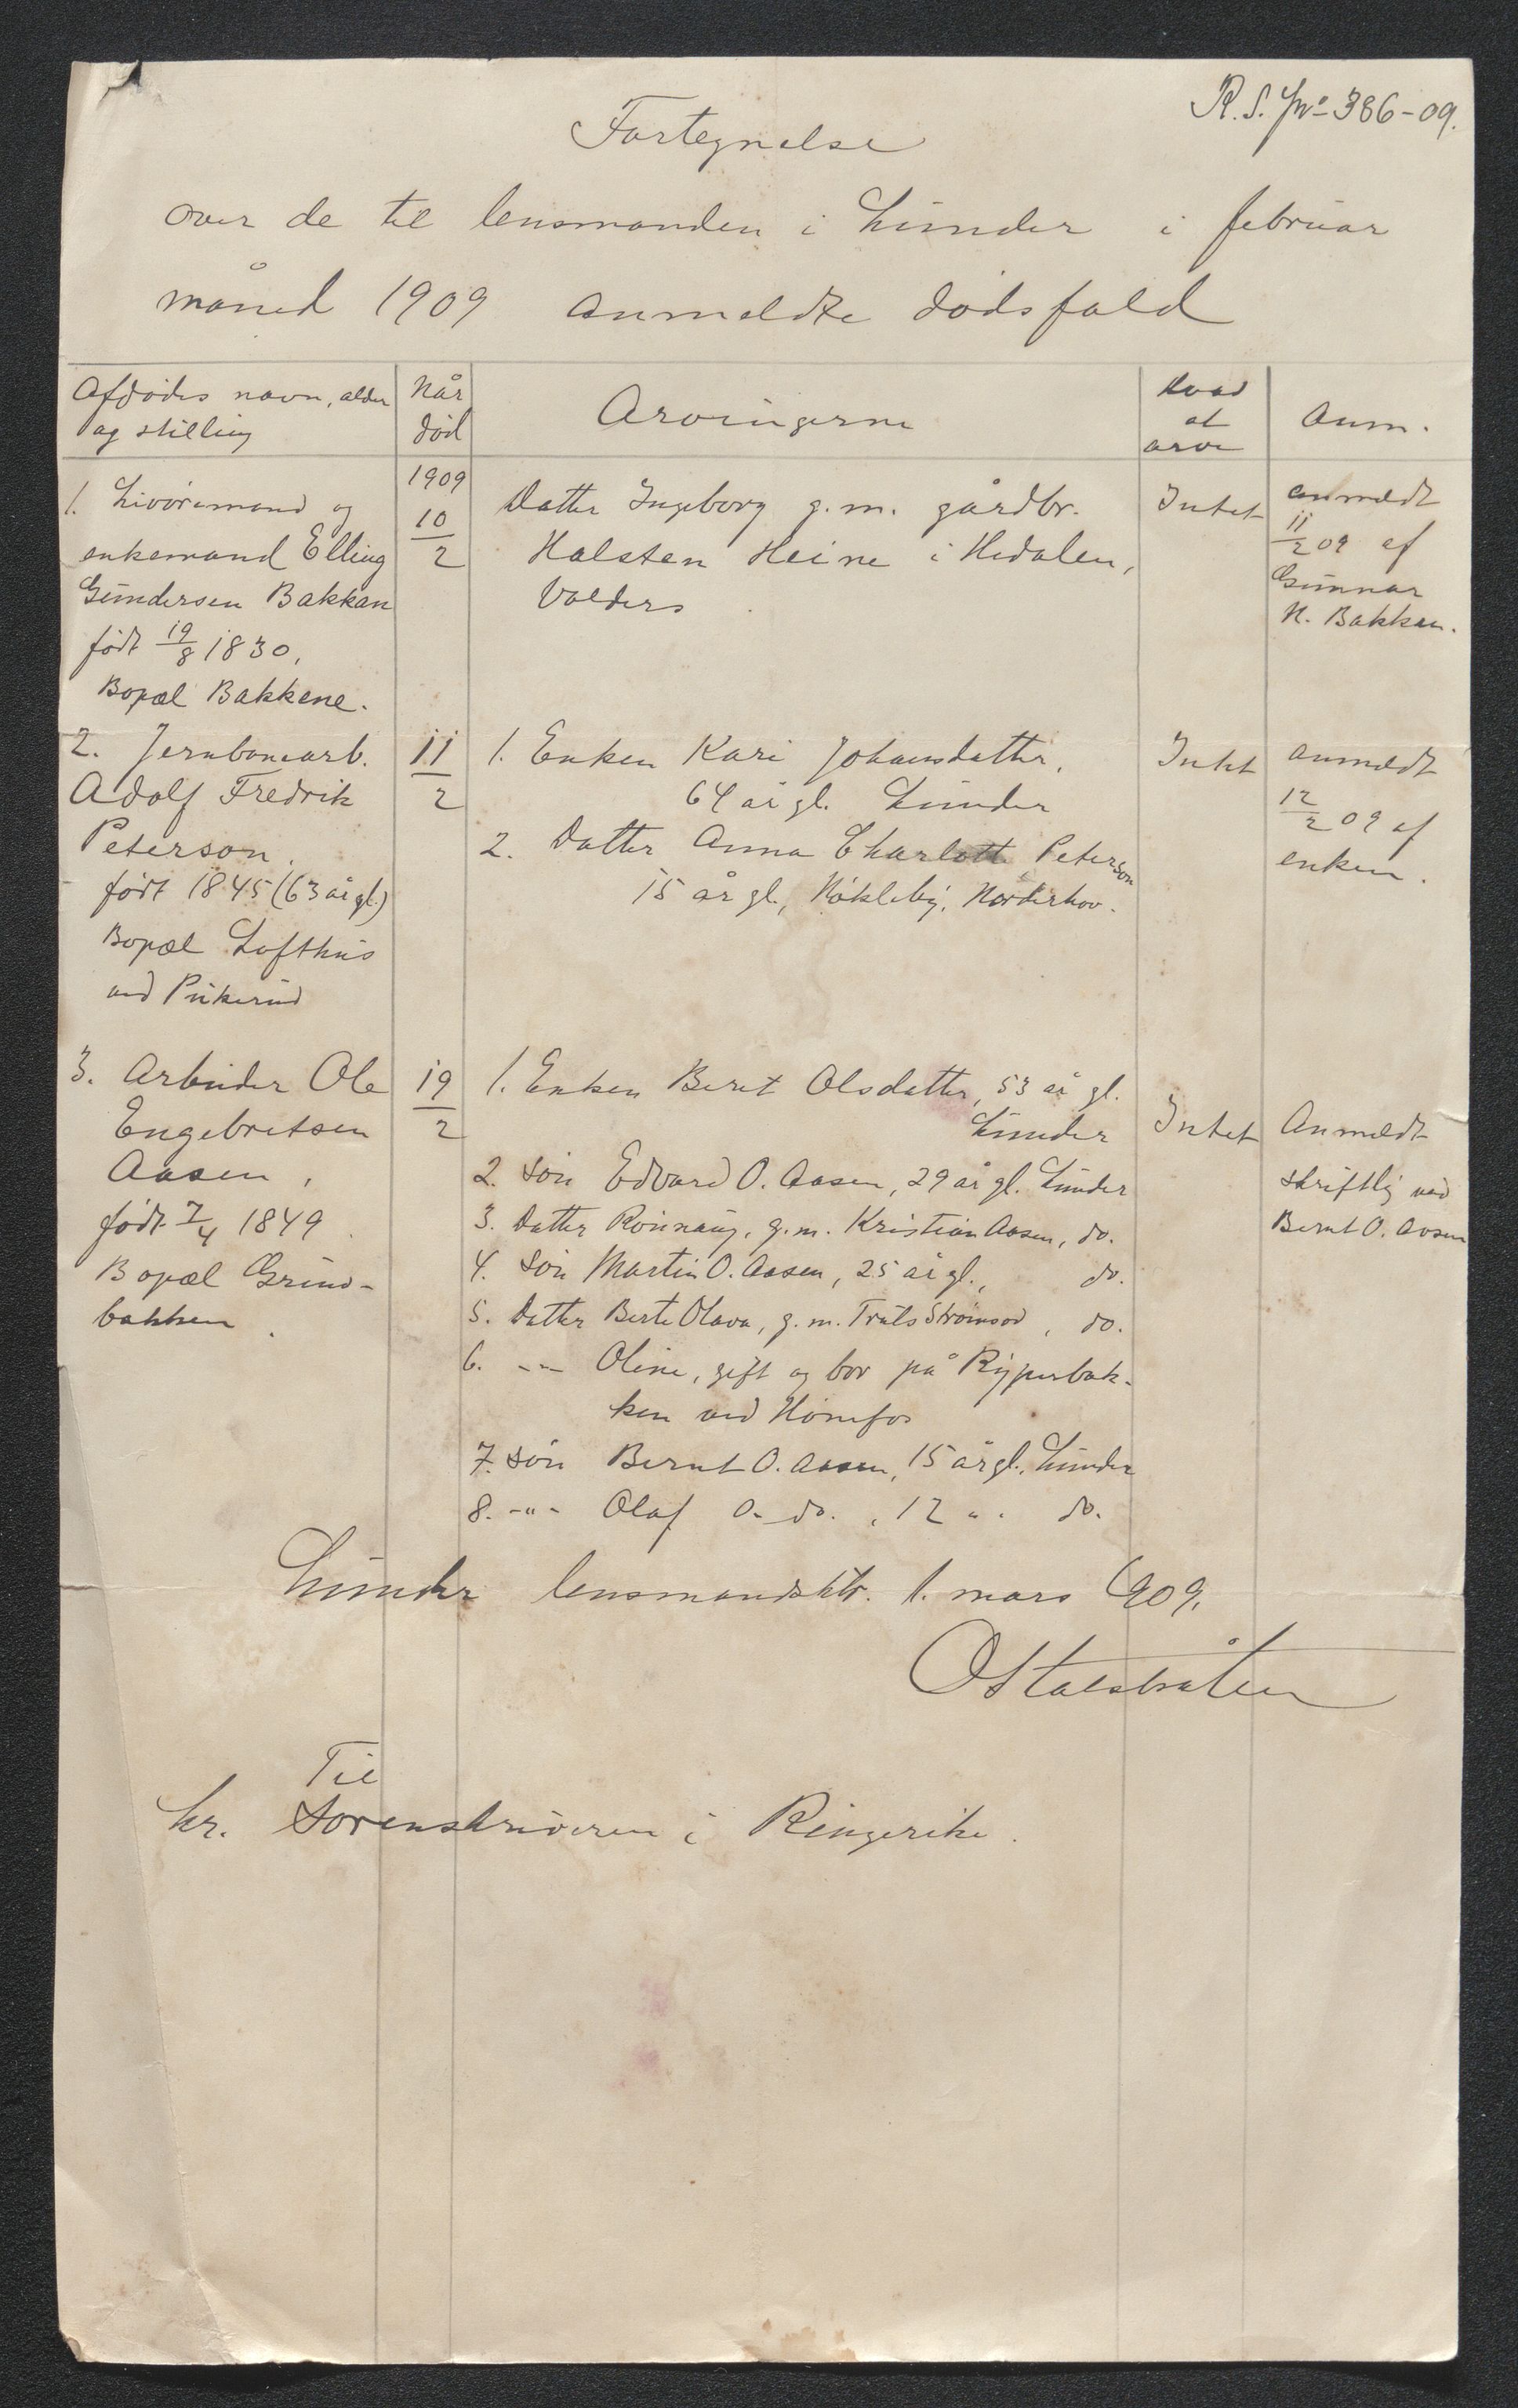 R. S. No 386-09.
Fortegnelse
over de til lensmanden i Lunder i februar
måned 1909 anmeldte dødsfald
Afdødes navn, alder
og stilling
Når
død
Arvingerne
Hvad
at
arve
Anm.
1909
1. Livøremand og
enkemand Elling
Gundersen Bakkan
født 19/8 1830,
Bopæl Bakkene.
10/2
Datter Ingeborg g. m. gårdbr.
Halsten Heine i Hedalen,
Valders
Intet
anmeldt
11/2 09 af
Gunnar
N. Bakken.
2. Jernbanearb.
Adolf Fredrik
Peterson.
født 1845 (63 år gl.)
Bopæl Lofthus
ved Pukerud
11/2
1. Enken Kari Johansdatter,
64 år gl. Lunder
2. Datter Anna Charlott Peterson
15 år gl., Nökleby, Norderhov.
Intet
anmeldt
12/2 09 af
enken.
3. Arbeider Ole
Engebretsen
Aasen,
født 7/4 1849
Bopæl Grind-
bakken.
19/2
1. Enken Berit Olsdatter, 53 år gl.
Lunder
2. Søn Edvard O. Aasen, 29 år gl. Lunder
3. Datter Rönnaug, g. m. Kristian Aasen, do.
4. Søn Martin O. Aasen, 25 år gl., do.
5. Datter Berte Olava, g. m. Truls Strömsod, do.
6. -"- Oline, gift og bor på Ryperbak-
ken ved Hönefos
7. Søn Bernt O. Aasen, 15 år gl., Lunder
8. -"- Olaf O. do. , 12 " . do.
Intet
Anmeldt
skriftlig ved
Bernt O. Aasen
Lunder lensmandsktr. 1. mars 1909.
O Stalsbråten
Til
hr. Sorenskriveren i Ringerike.